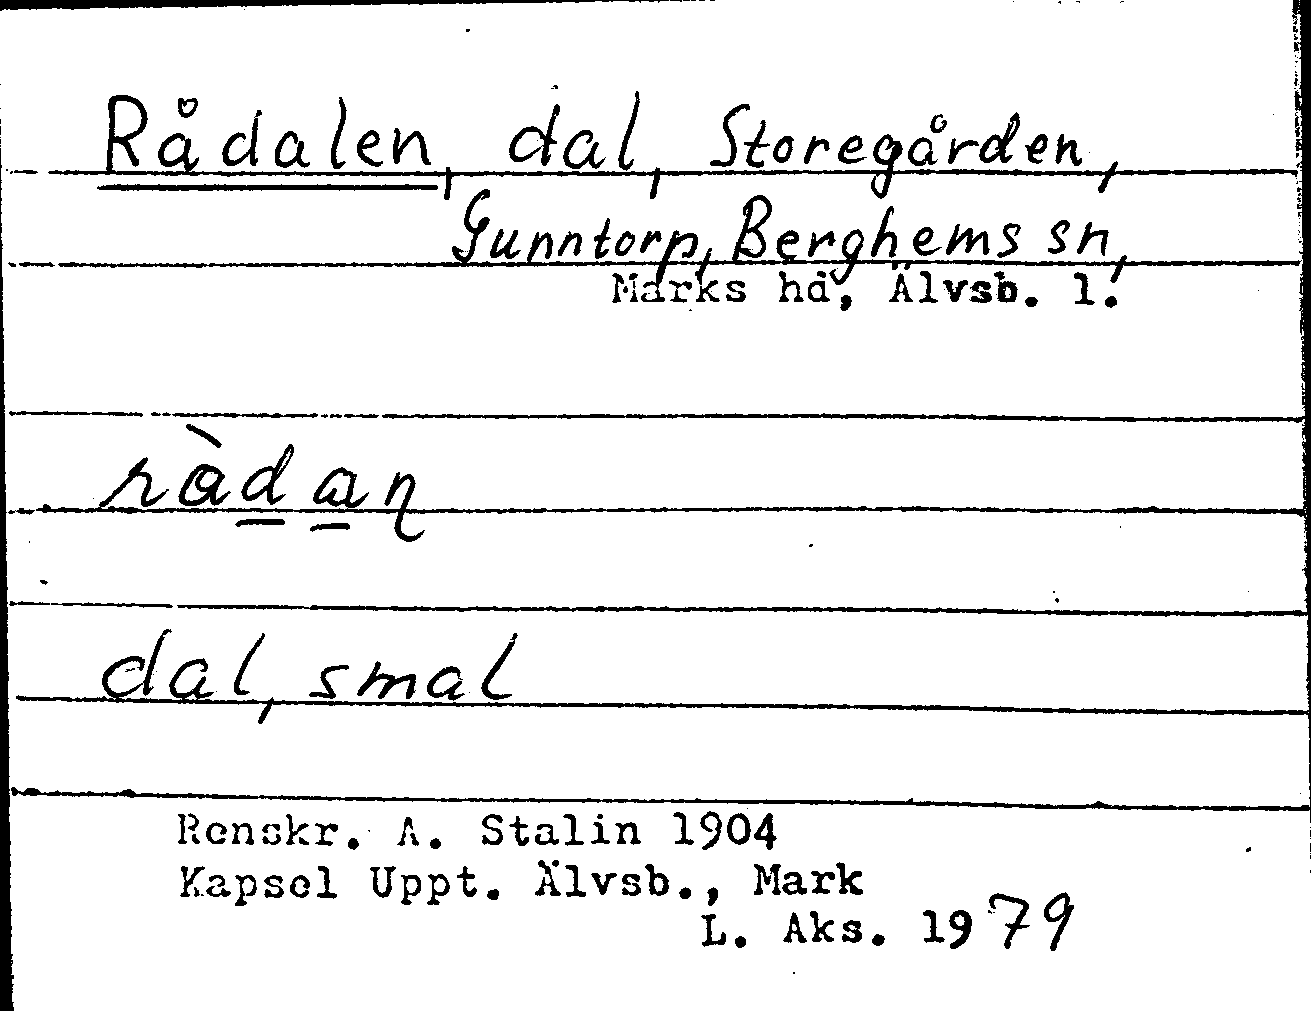 Rådalen, dal, Storegården,
Gunntorp, Berghems sn,
Marks hd, Älvsb. l.
ràdaɳ
dal, smal
Renskr. A. Stalin 1904
Kapsel Uppt. Älvsb., Mark
L. Aks. 1979